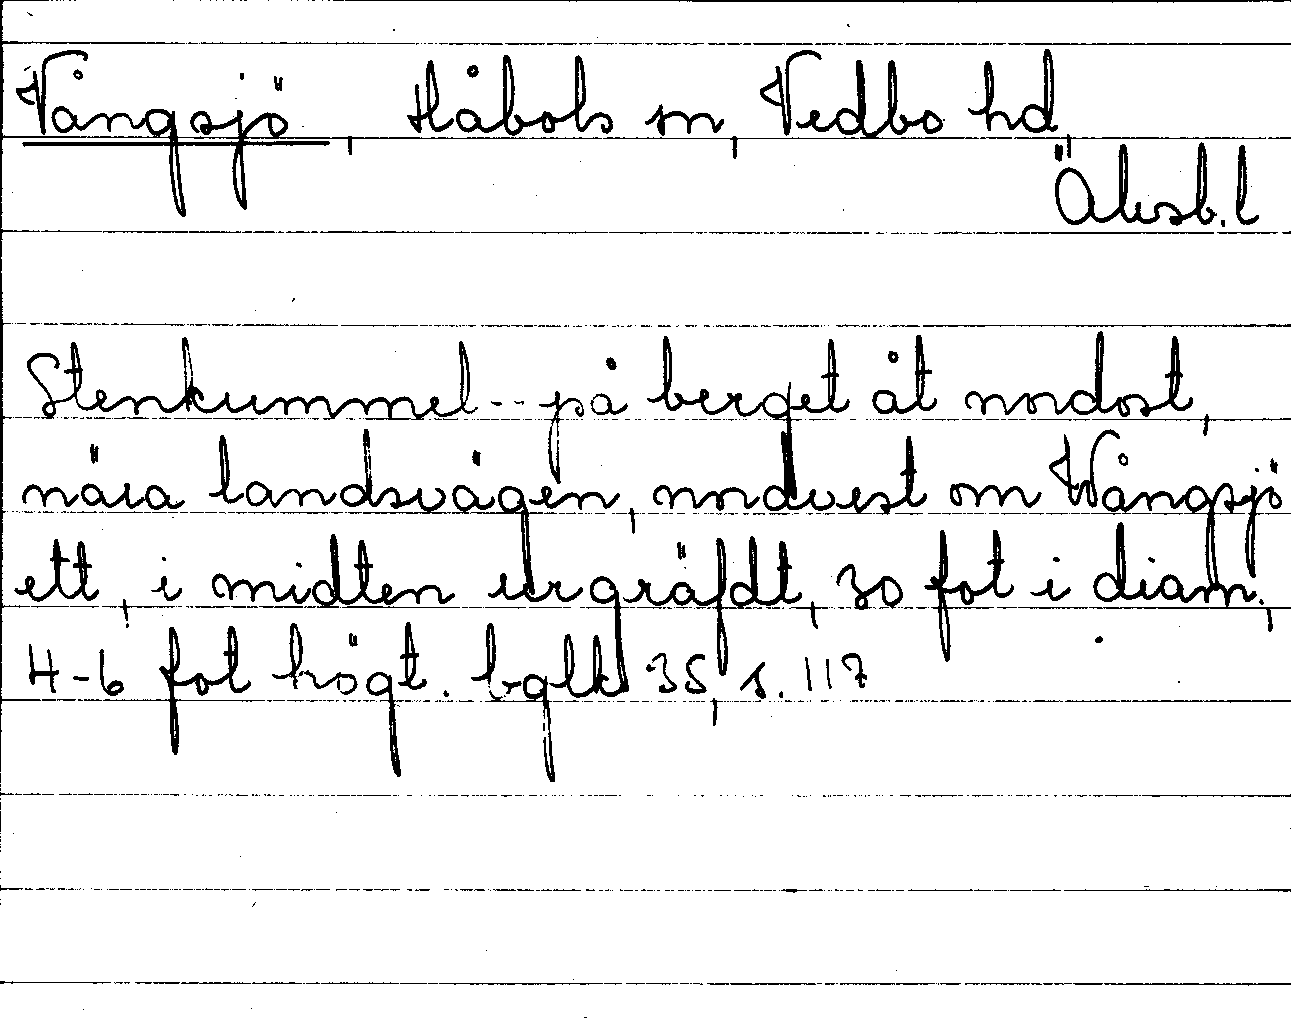 Vångsjö, Håbols sn, Vedbo hd,
Älvsb.l
Stenkummel -- på berget åt nordost,
nära landsvägen, nordvest om Wångsjö
ett, i midten urgräfdt, 30 fot i diam.,
4-6 fot högt. bglk 35, s. 117